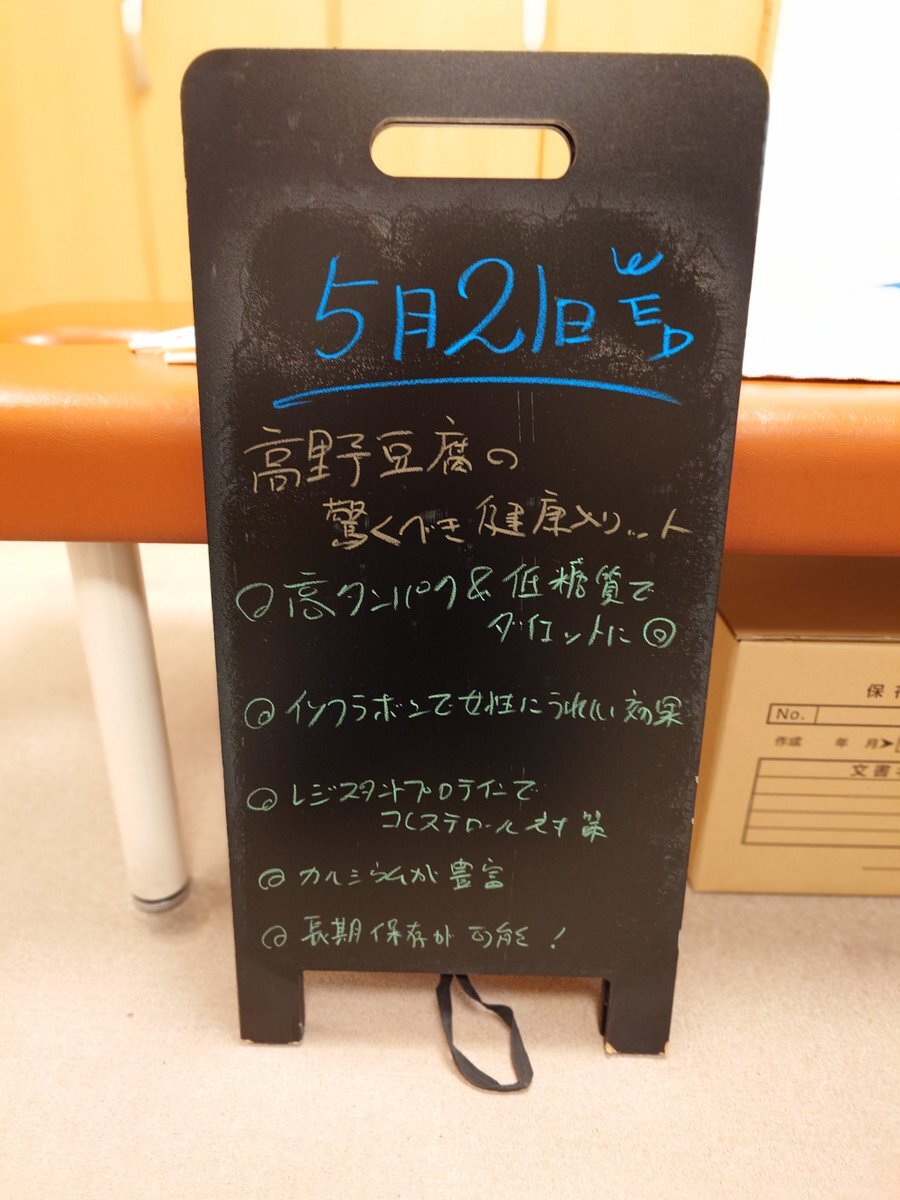 5月21日 WED
高野豆腐の
驚くべき健康メリット
◎高タンパク&低糖質で
ダイエットに◎
◎イソフラボンで女性にうれしい効果
◎レジスタントプロテインで
コレステロール対策
◎カルシウムが豊富
◎長期保存が可能!
保存
No.
作成 年 月➤
文書